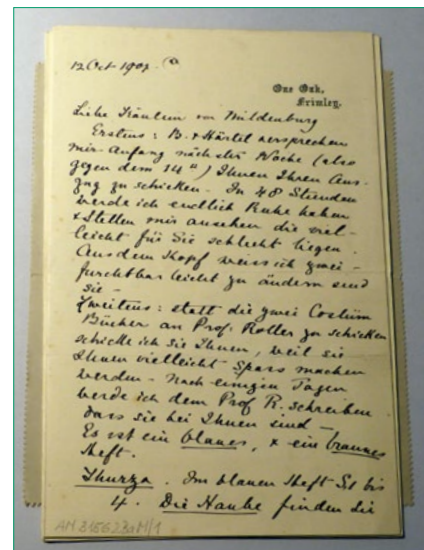 12 Oct 1907.
One Oak,
Frimley.
Liebe Fräulein von Mildenburg
Erstens: B. & Härtel versprechen
mir Anfang nächster Woche (also
gegen dem 14ten) Ihnen Ihren Aus-
zug zu schicken. In 48 Stunden
werde ich endlich Ruhe haben
& Stellen mir ansehen die viel-
leicht für Sie schlecht liegen.
Aus dem Kopf weiss ich zwei -
furchtbar leicht zu ändern sind
sie -
Zweitens: statt die zwei Costüm
Bücher an Prof. Roller zu schicken
schicke ich sie Ihnen, weil sie
Ihnen vielleicht Spass machen
werden - Nach einigen Tagen
werde ich dem Prof R. schreiben
dass sie bei Ihnen sind -
Es ist ein blaues, & ein braunes
Heft.
Thurza. Im blauen Heft bis
4. Die Haube finden Sie
AM 31562 BaM/1